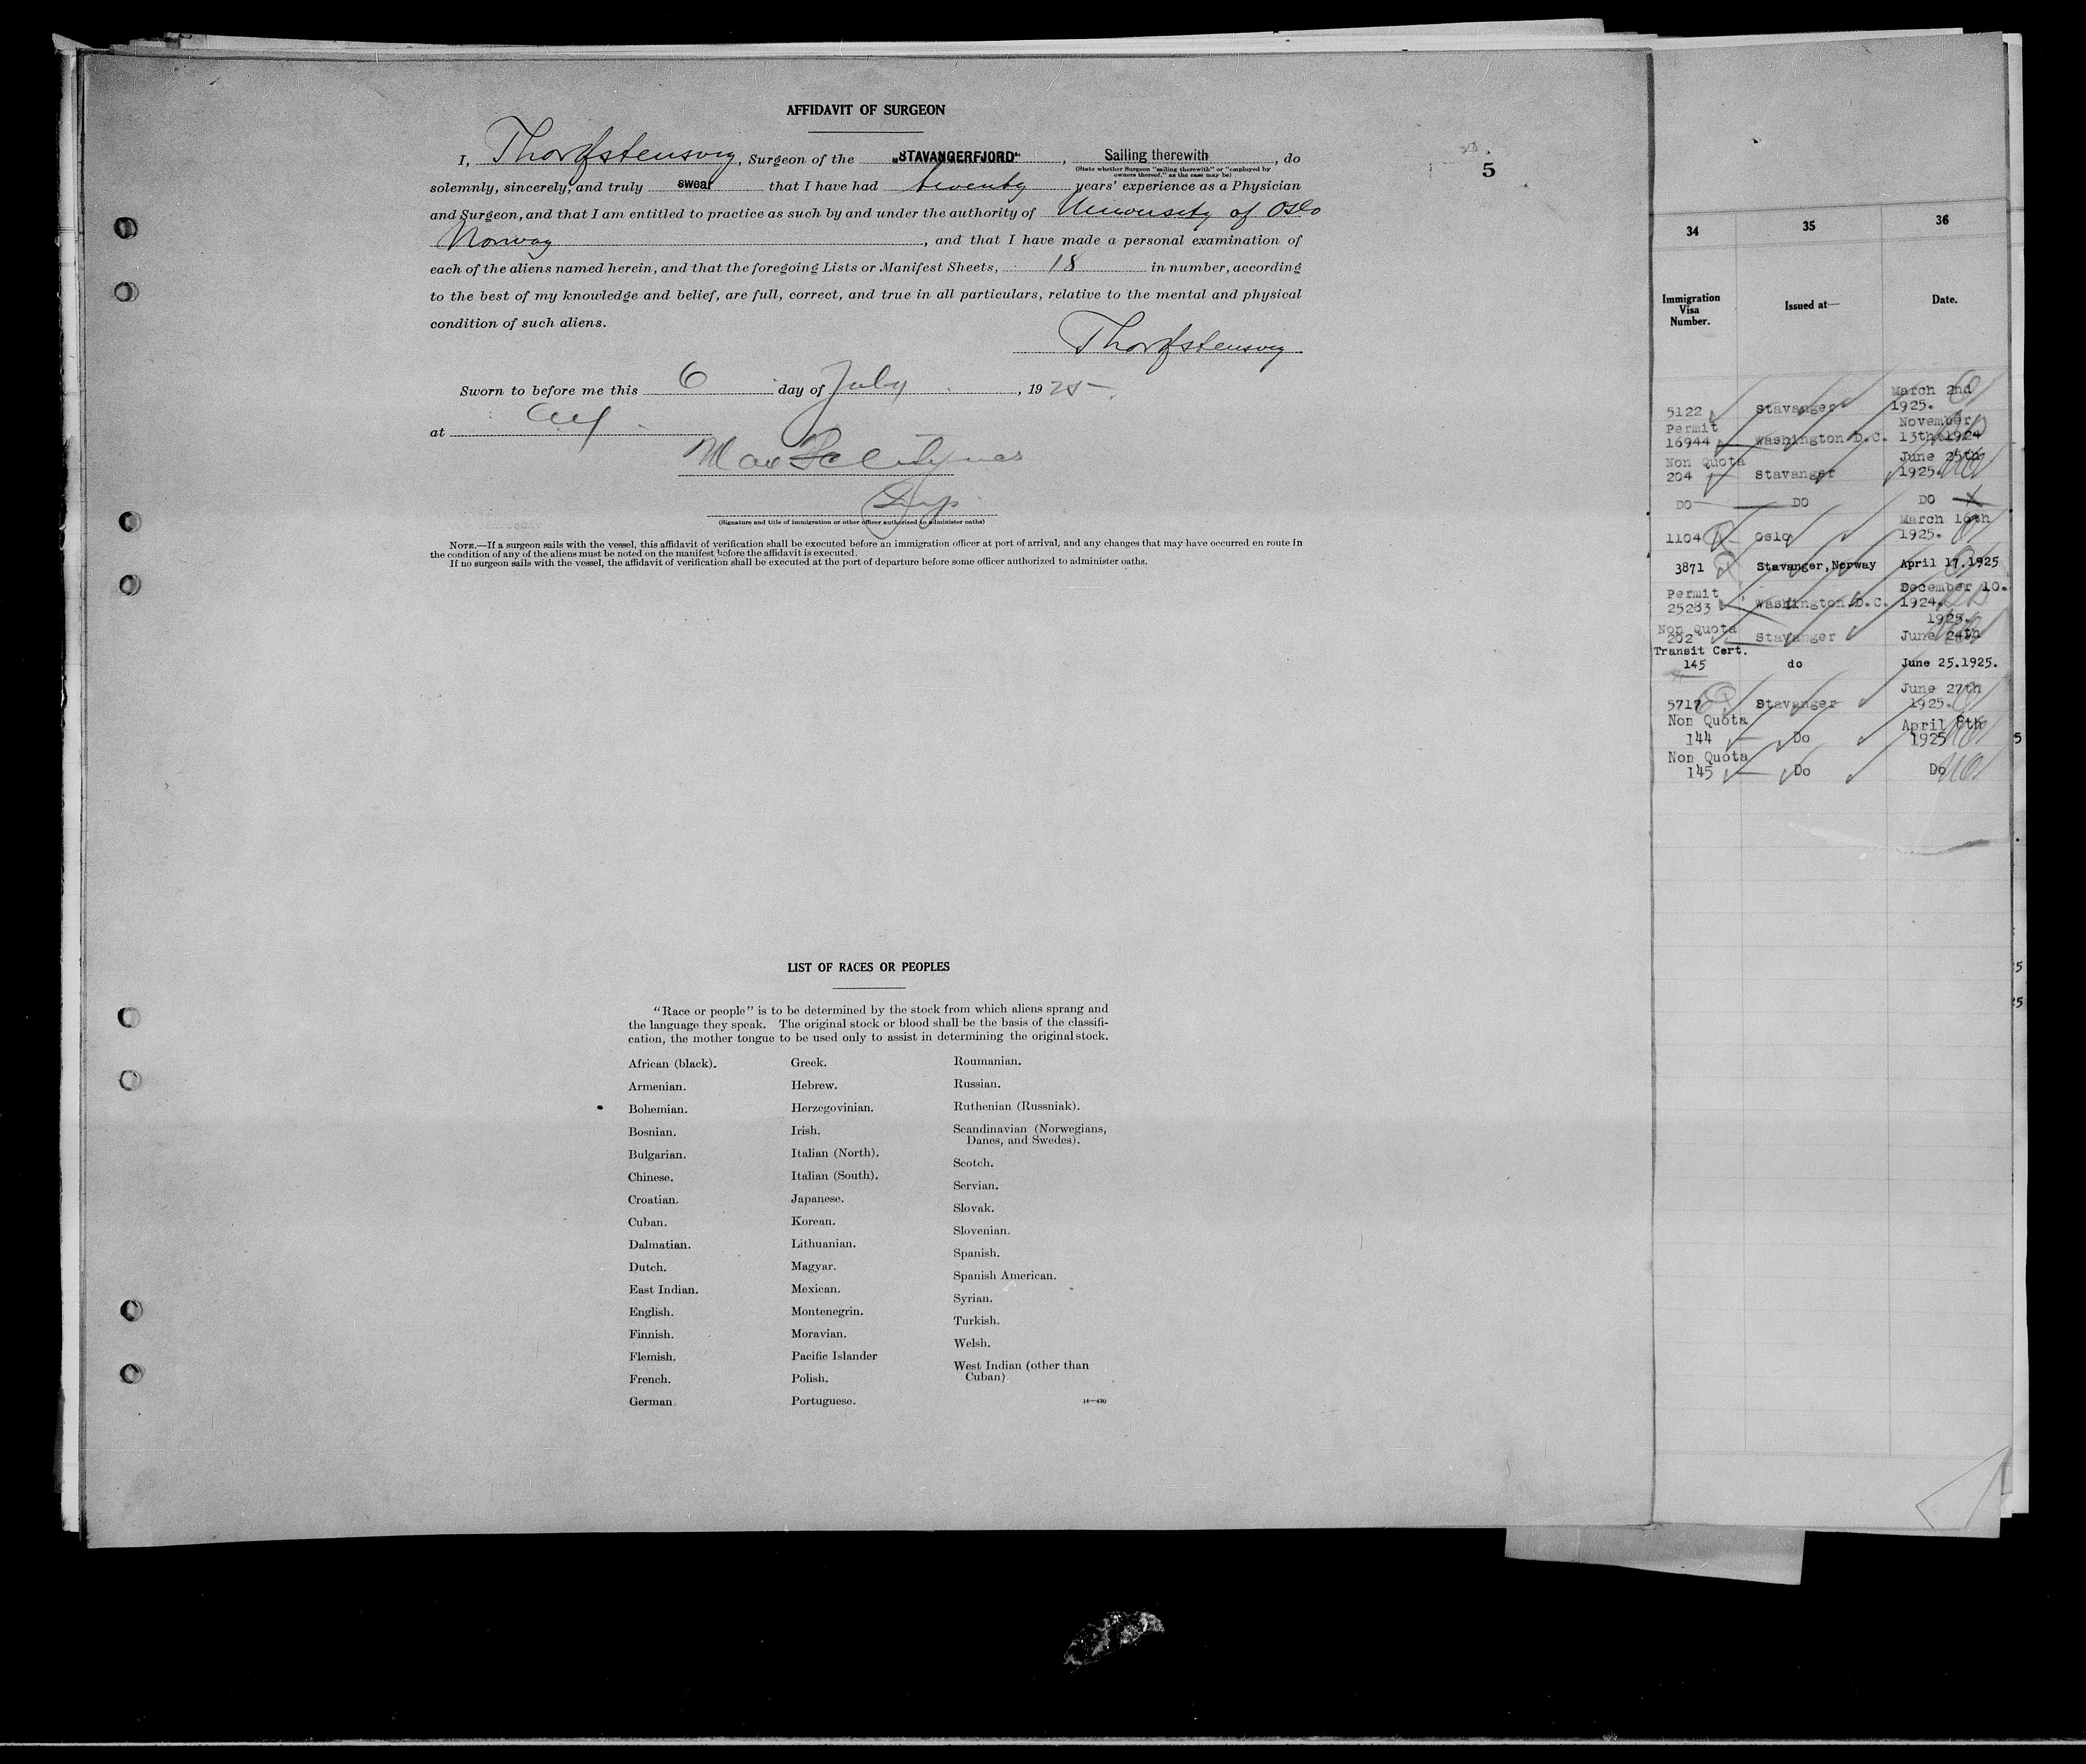 AFFIDAVIT OF SURGEON
5
I, Thorfstensvig, Surgeon of the "STAVANGERFJORD", Sailing therewith, do
(State whether Surgeon "sailing therewith" or "employed by
owners thereof," as the case may be)
solemnly, sincerely, and truly swear that I have had twenty years' experience as a Physician
and Surgeon, and that I am entitled to practice as such by and under the authority of University of Oslo
Norway, and that I have made a personal examination of
each of the aliens named herein, and that the foregoing Lists or Manifest Sheets, 18 in number, according
to the best of my knowledge and belief, are full, correct, and true in all particulars, relative to the mental and physical
condition of such aliens.
Thorfstensvig
Sworn to before me this 6 day of July, 1925.
at
Max
Insp
(Signature and title of immigration or other officer authorized to administer oaths)
NOTE.—If a surgeon sails with the vessel, this affidavit of verification shall be executed before an immigration officer at port of arrival, and any changes that may have occurred en route in
the condition of any of the aliens must be noted on the manifest before the affidavit is executed.
If no surgeon sails with the vessel, the affidavit of verification shall be executed at the port of departure before some officer authorized to administer oaths.
LIST OF RACES OR PEOPLES
"Race or people" is to be determined by the stock from which aliens sprang and
the language they speak. The original stock or blood shall be the basis of the classifi-
cation, the mother tongue to be used only to assist in determining the original stock.
African (black).
Armenian.
Bohemian.
Bosnian.
Bulgarian.
Chinese.
Croatian.
Cuban.
Dalmatian.
Dutch.
East Indian.
English.
Finnish.
Flemish.
French.
German.
Greek.
Hebrew.
Herzegovinian.
Irish.
Italian (North).
Italian (South).
Japanese.
Korean.
Lithuanian.
Magyar.
Mexican.
Montenegrin.
Moravian.
Pacific Islander
Polish.
Portuguese.
Roumanian.
Russian.
Ruthenian (Russniak).
Scandinavian (Norwegians,
Danes, and Swedes).
Scotch.
Servian.
Slovak.
Slovenian.
Spanish.
Spanish American.
Syrian.
Turkish.
Welsh.
West Indian (other than
Cuban)
14—430
34 35 36
Immigration
Visa
Number.
Issued at—
Date.
March 2nd
5122 Stavanger 1925.
Permit November
16944 Washington D.C. 13th 1924
Non Quota June 25th
204 Stavanger 1925.
DO DO DO
March 16th
1104 Oslo 1925.
3871 Stavanger, Norway April 17.1925
Permit December 10.
25283 Washington.D.C. 1924.
Non Quota 1925.
202 Stavanger June 24th
Transit Cert.
145 do June 25.1925.
June 27th
5717 Stavanger 1925.
Non Quota April 8th
144 Do 1925
Non Quota
145 Do Do
5
5
5